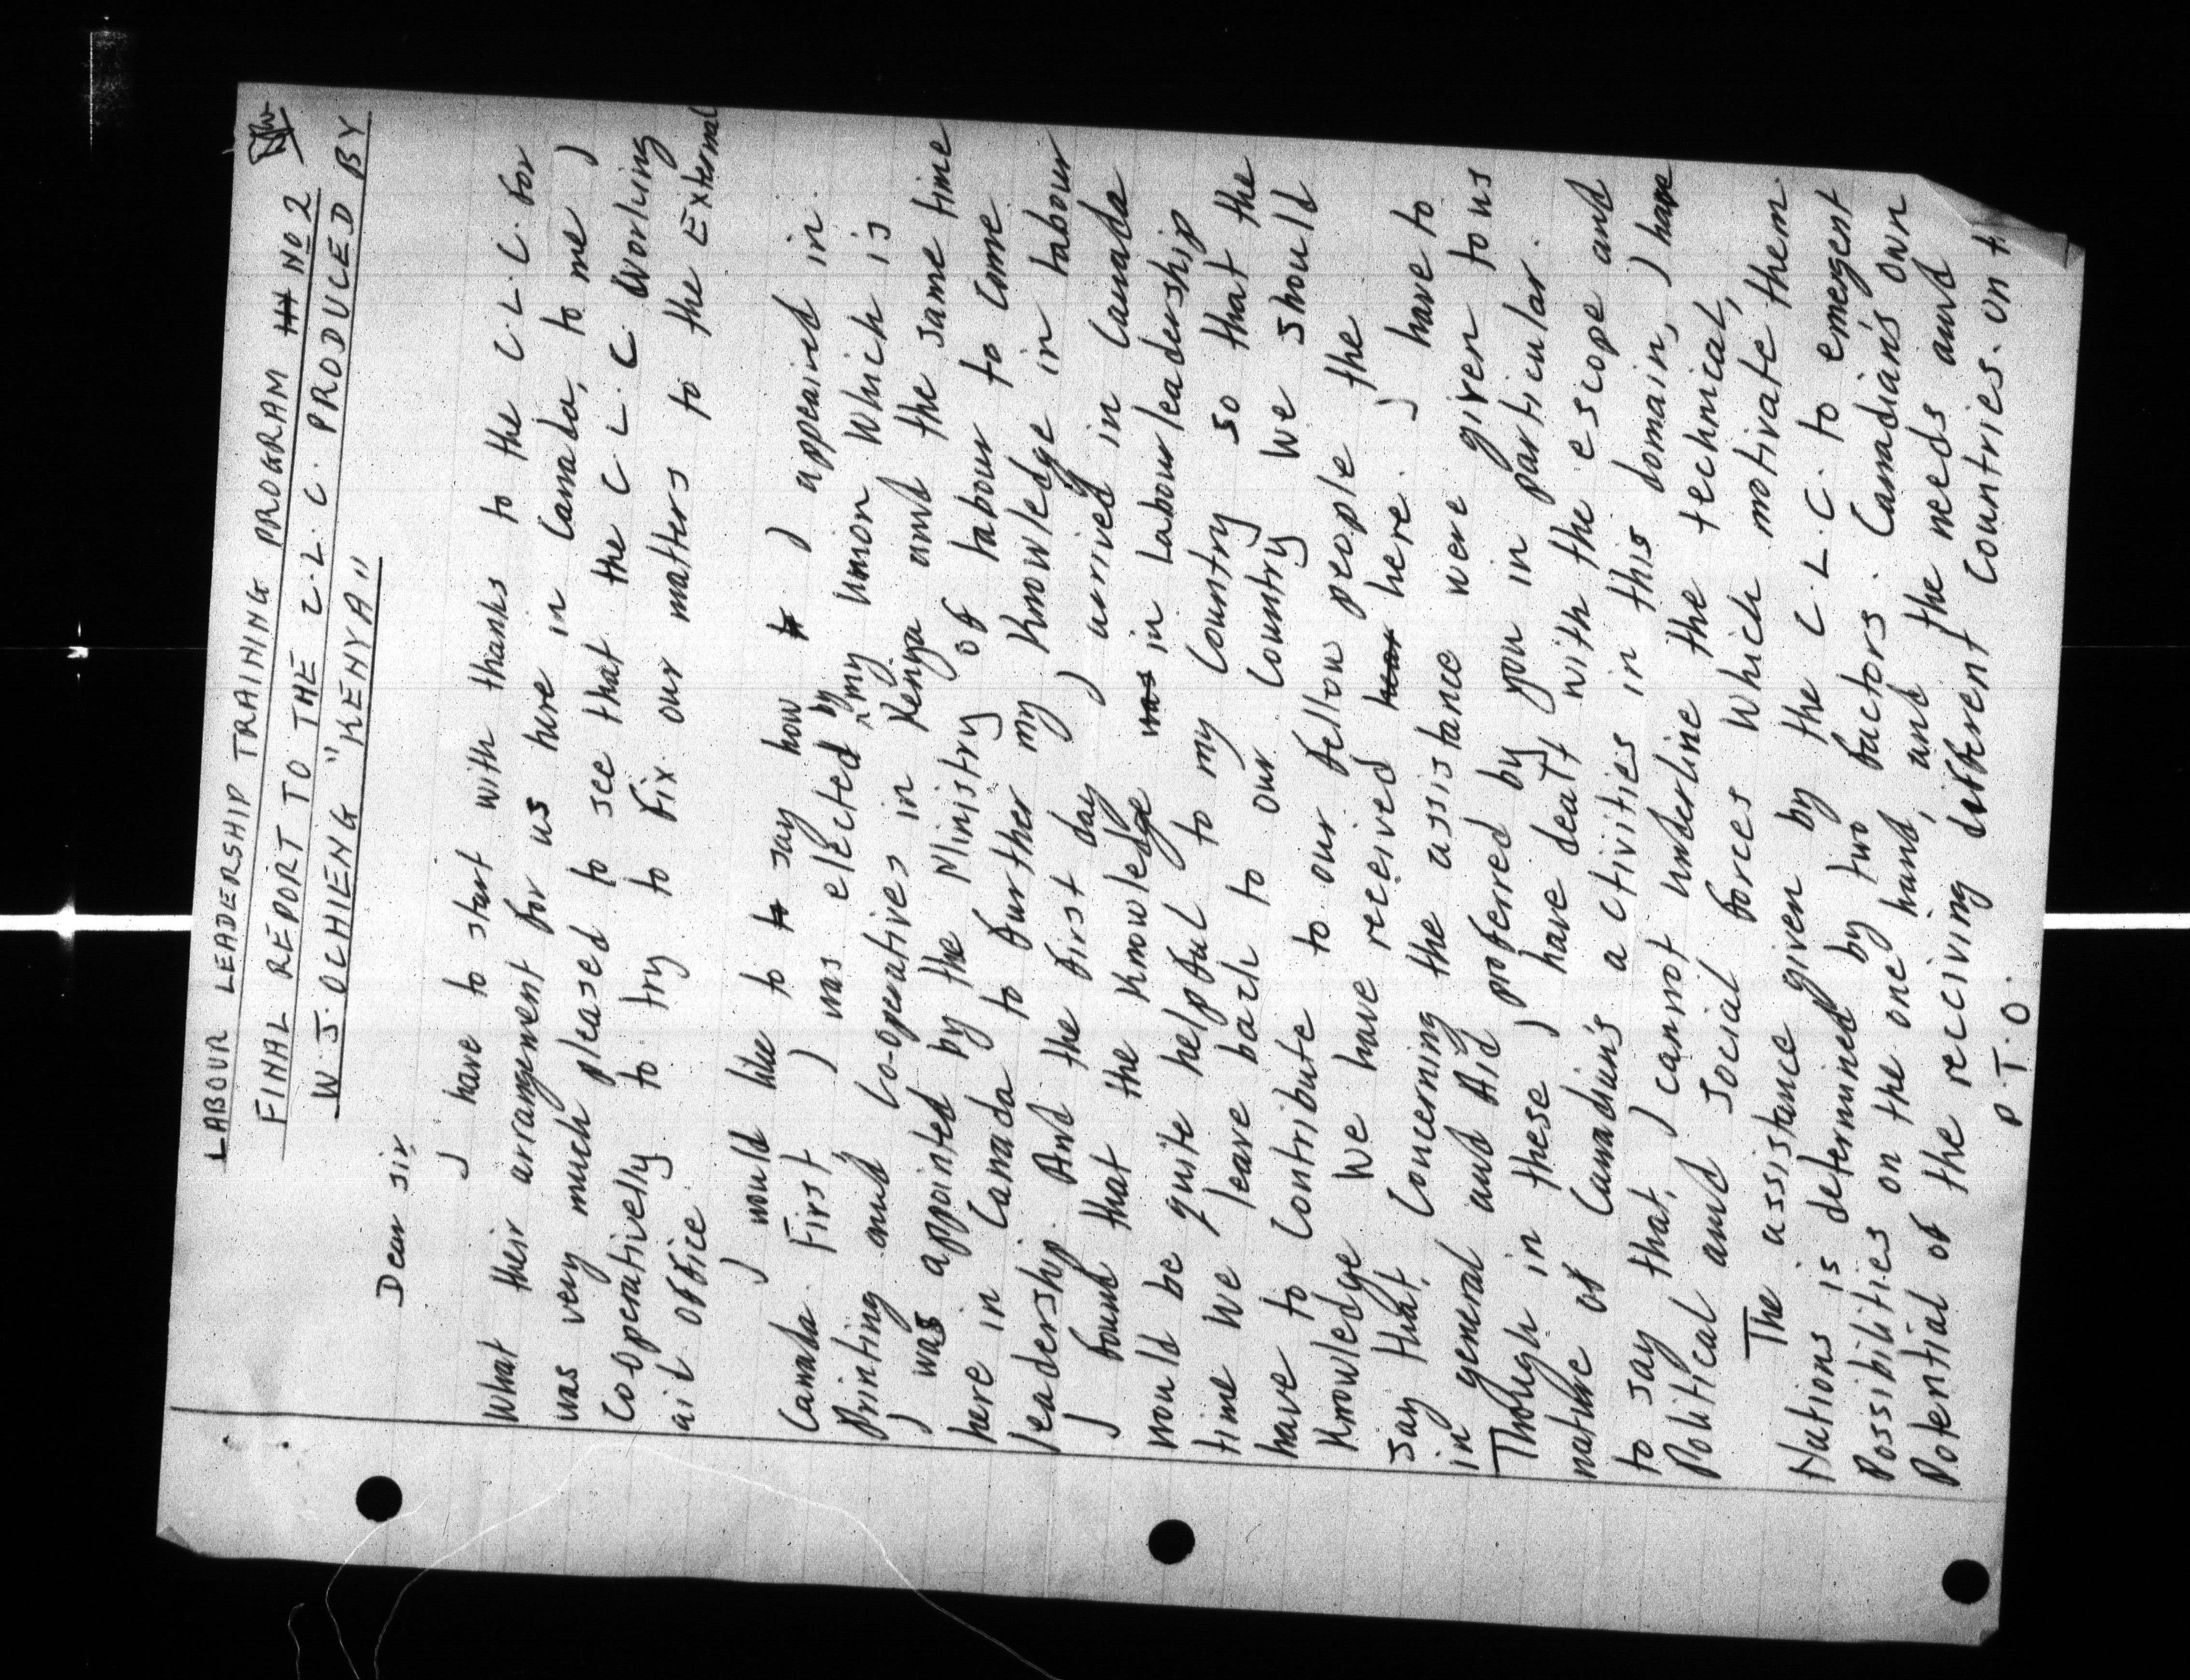 LABOUR LEADERSHIP TRAINING PROGRAM No 2
FINAL REPORT TO THE C.L.C. PRODUCED BY
W. J. OCHIENG "KENYA"
Dear Sir,
I have to start with thanks to the C.L.C. for
What their arrangement for us here in Canada, to me I
was very much pleased to see that the C.L.C. Working
Co-operatively to try to fix our matters to the External
ait office
I would like to say how I appeared in
Canada. First I was elected by my union Which is
Printing and Co-operatives in Kenya and the same time
I was appointed by the Ministry of labour to come
here in Canada to further my Knowledge in labour
leadership. And the first day I arrived in Canada
I found that the Knowledge in Labour leadership
would be quite helpful to my Country so that the
time we leave back to our Country we should
have to Contribute to our fellow people the
Knowledge we have received here. I have to
say that, Concerning the assistance were given to us
in general and Aid proferred by you in particular.
Though in these I have dealt with the escope and
nature of Canadian's activities in this domain, I have
to say that, I cannot underline the technical,
Political and Social forces Which motivate them.
The assistance given by the C.L.C. to emergent
Nations is determined by two factors. Canadian's own
Possibilities on the one hand, and the needs and
Potential of the reciving different Countries. on
P.T.O.